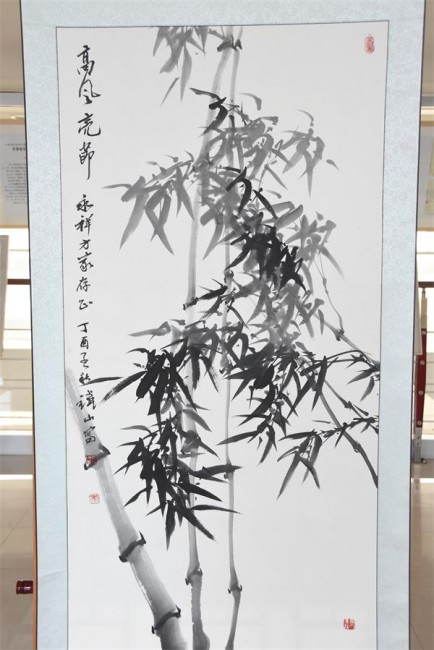 高风亮節
永祥方家存正 丁酉之秋鐸山写